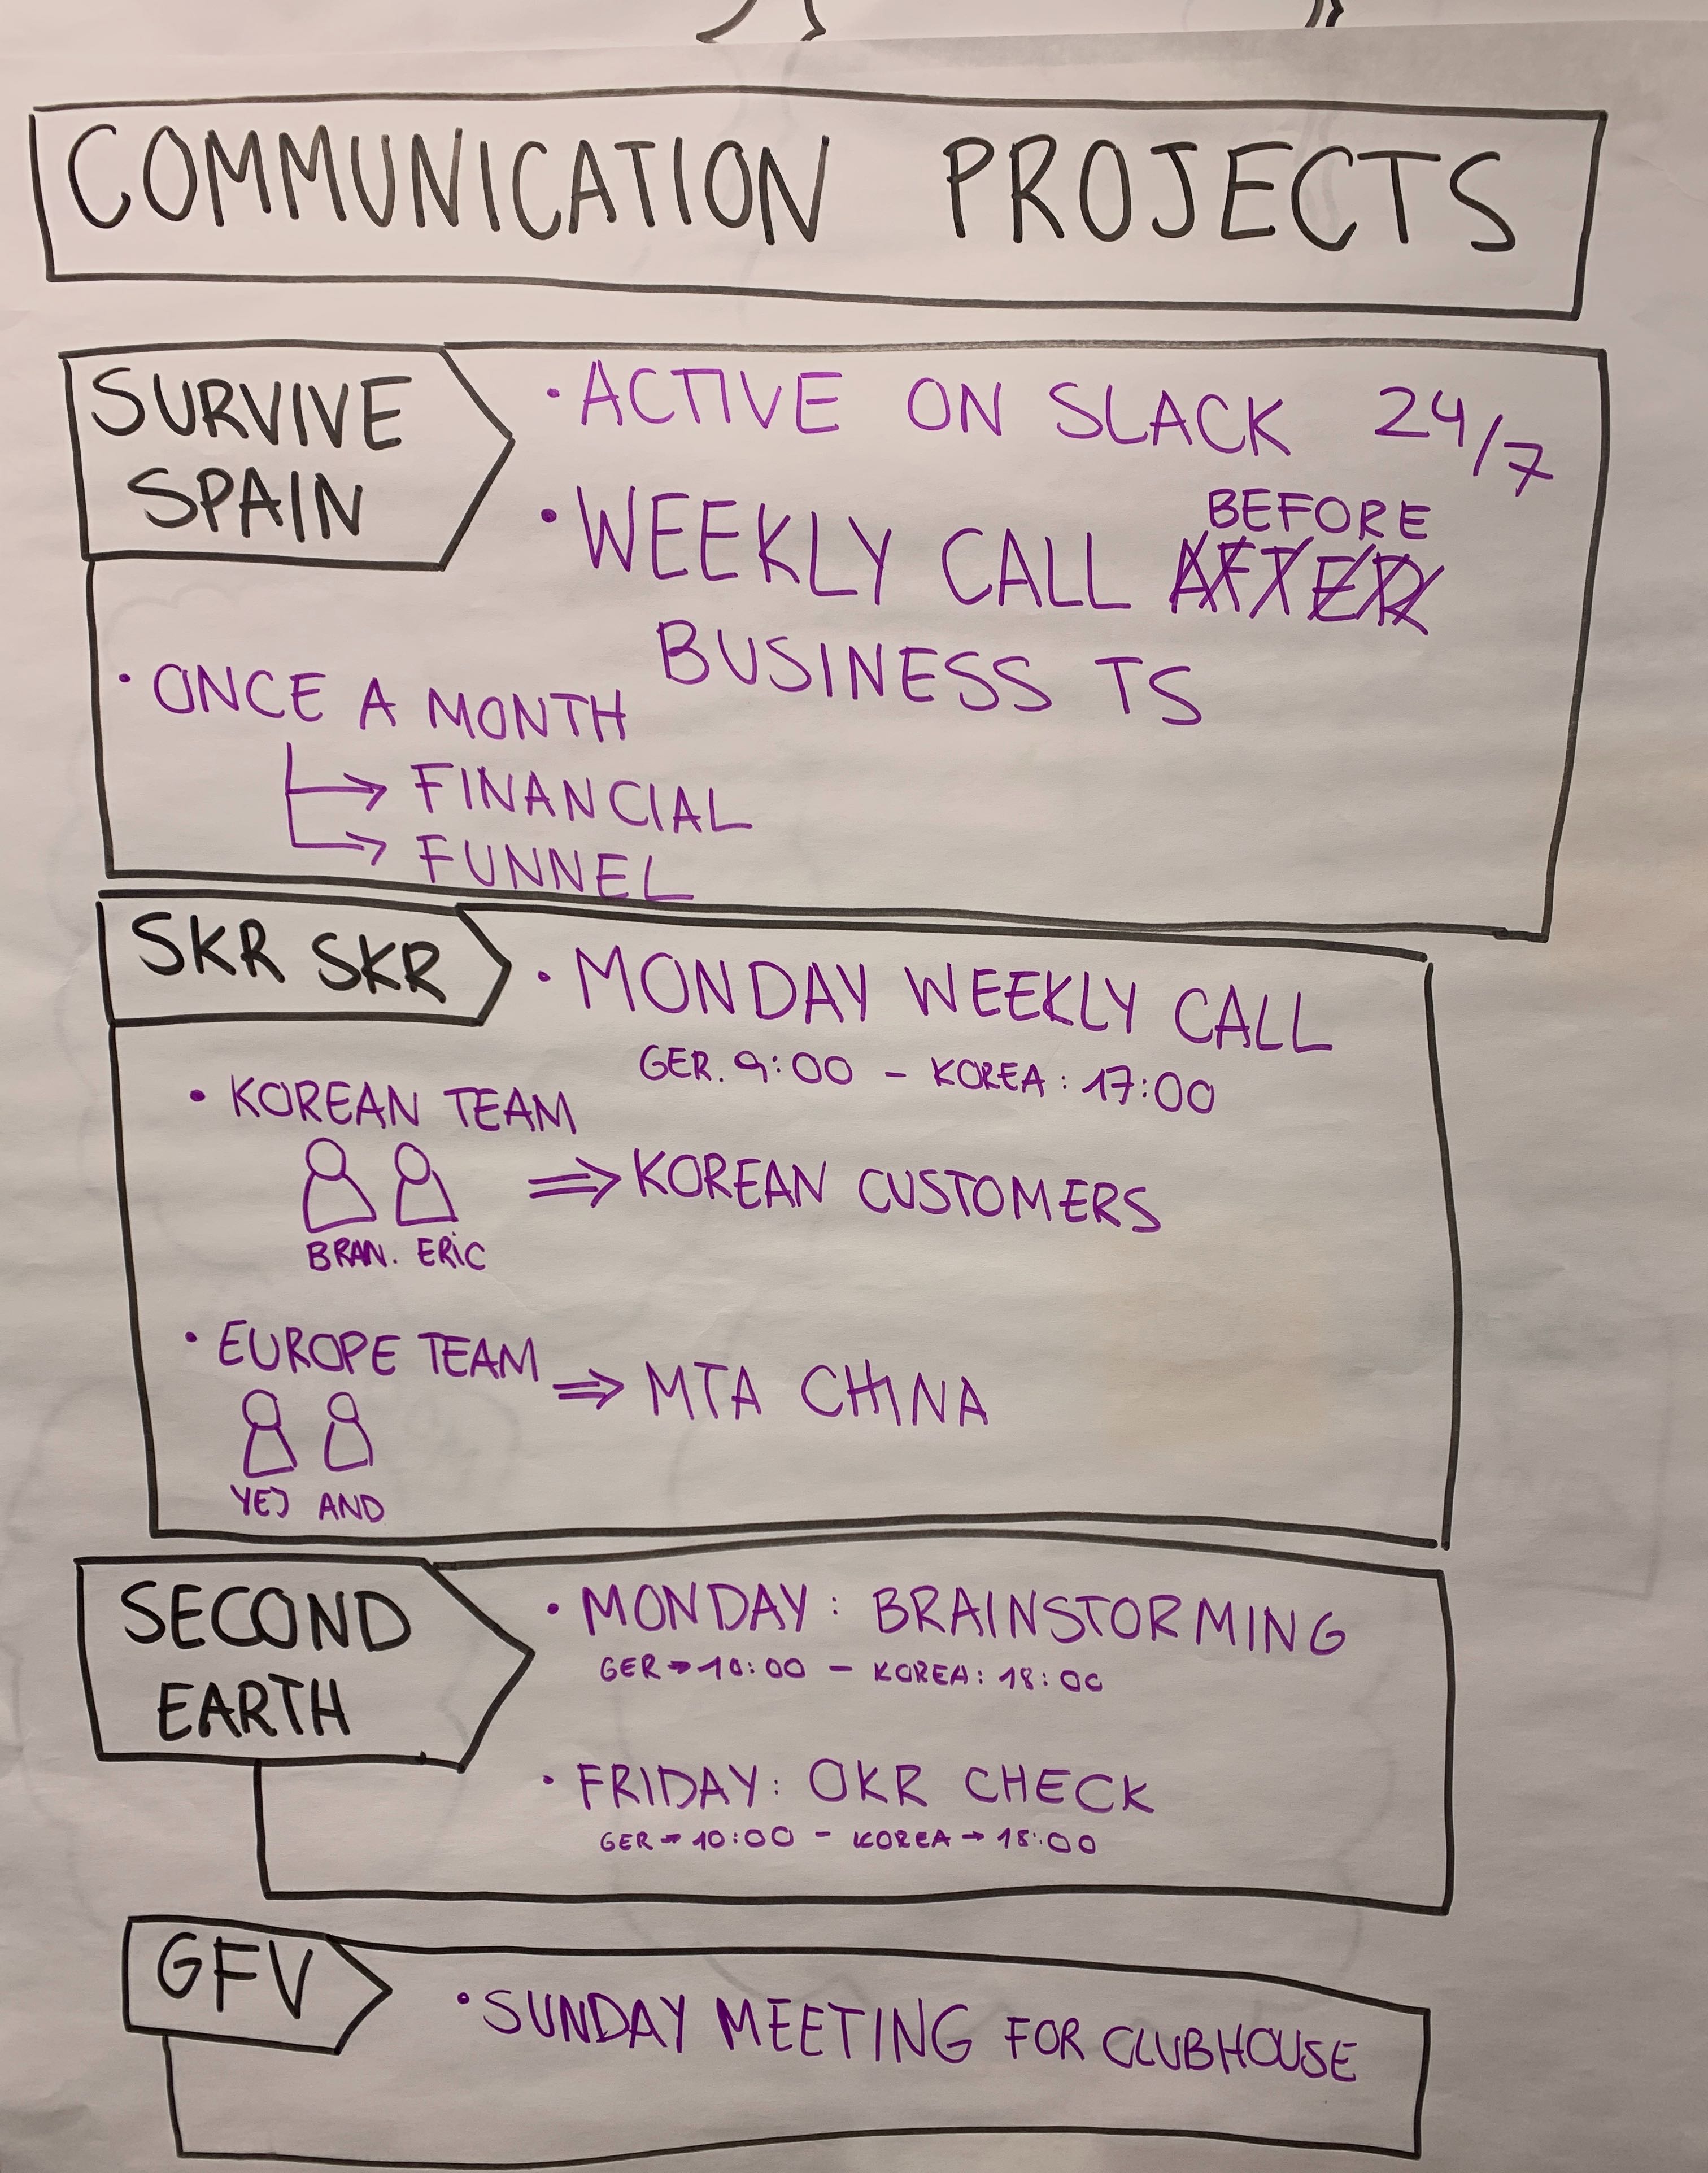 COMMUNICATION PROJECTS
SURVIVE
SPAIN
• ACTIVE ON SLACK 24/7
BEFORE
• WEEKLY CALL AFTER
BUSINESS TS
• ONCE A MONTH
→ FINANCIAL
→ FUNNEL
SKR SKR
• MONDAY WEEKLY CALL
GER. 9:00 - KOREA: 17:00
• KOREAN TEAM
⇒ KOREAN CUSTOMERS
BRAN. ERIC
• EUROPE TEAM ⇒ MTA CHINA
YEJ AND
SECOND
EARTH
• MONDAY: BRAINSTORMING
GER → 10:00 - KOREA: 18:00
• FRIDAY: OKR CHECK
GER → 10:00 - KOREA → 18:00
GFV
• SUNDAY MEETING FOR CLUBHOUSE